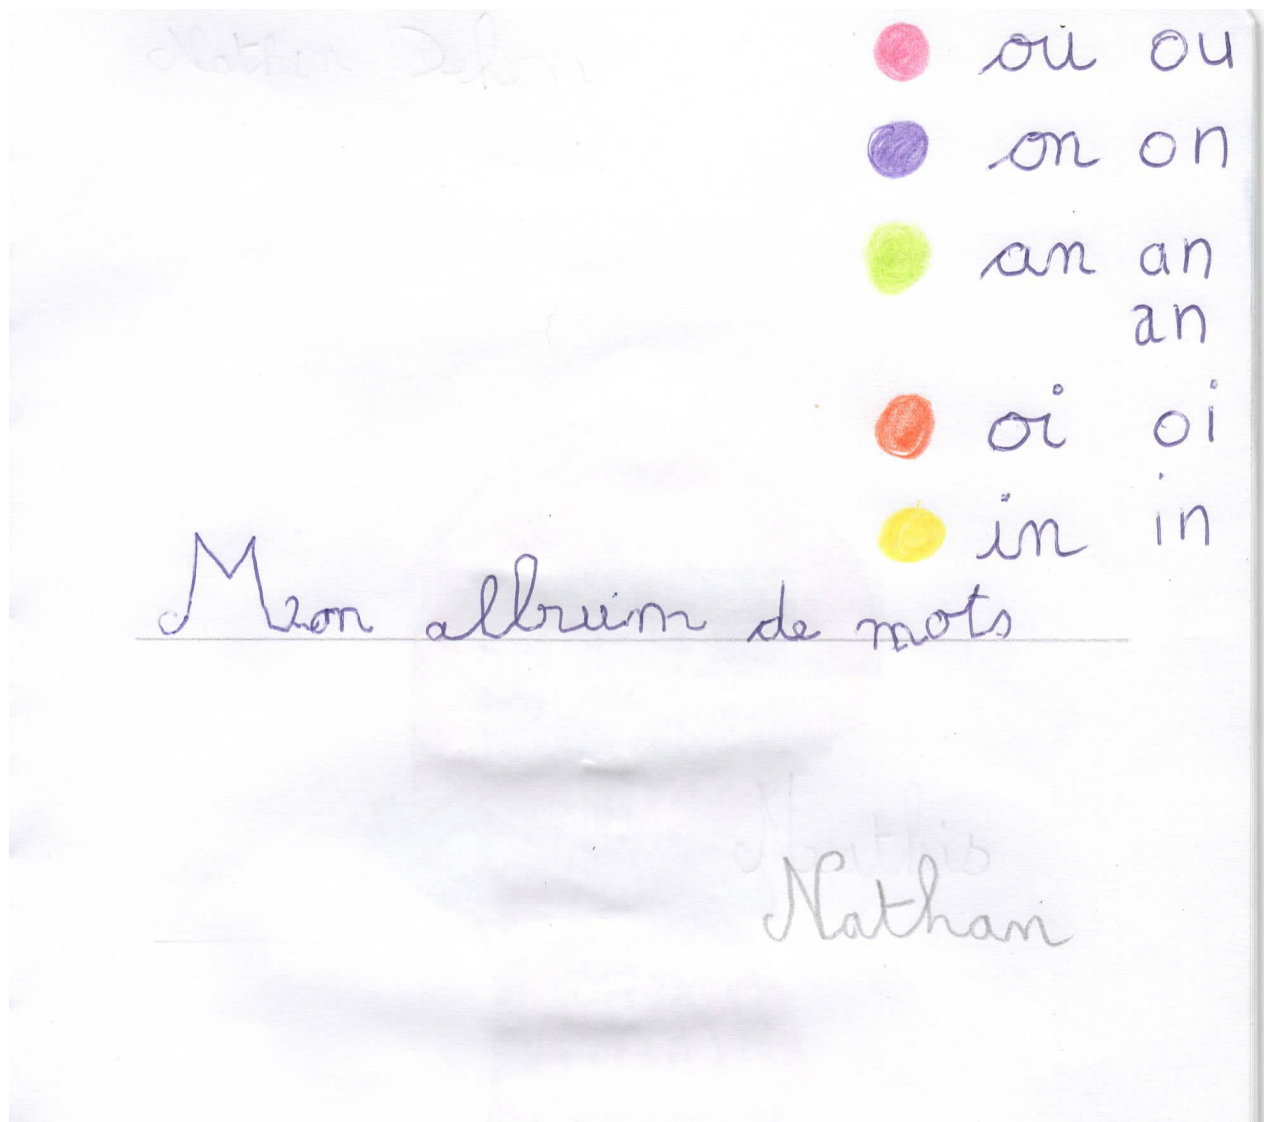 ou ou
on on
an an
an
oi oi
in in
Mon album de mots
Nathan